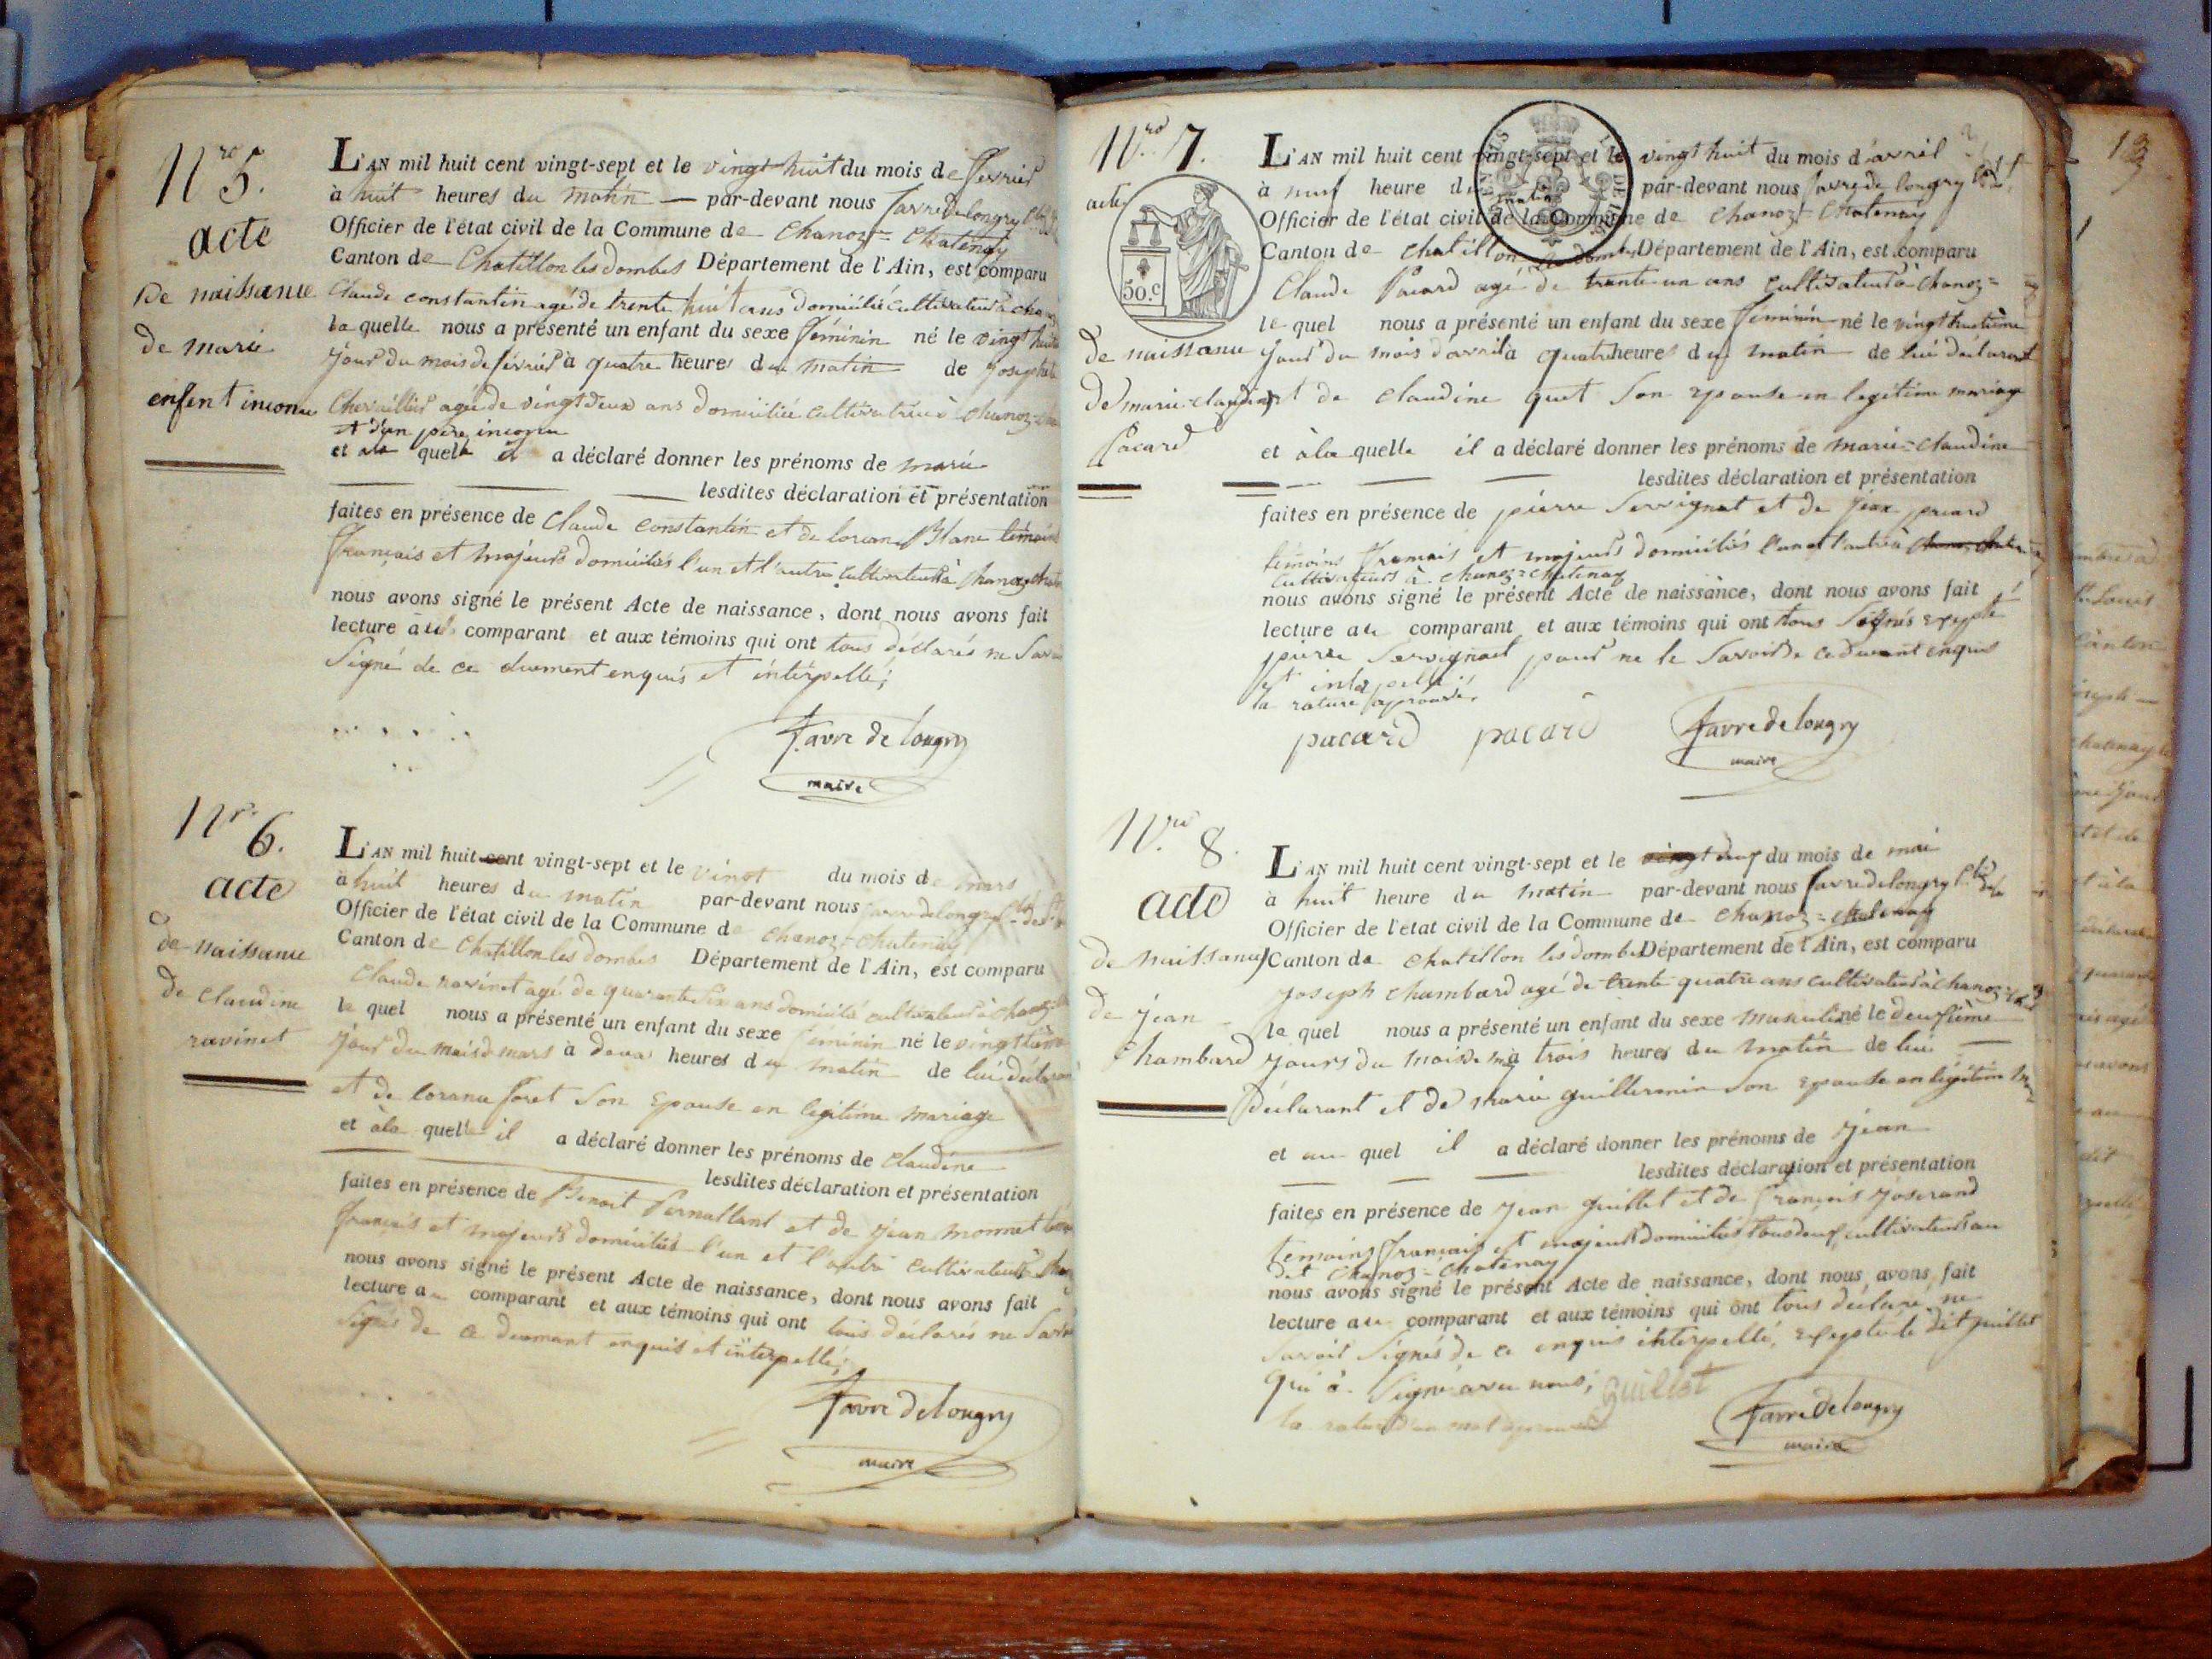 Nro 5.
acte
De naissance
de marie
enfent inconu
L'AN mil huit cent vingt-sept et le vingt huit du mois de fevrier
à huit heures du matin — par-devant nous favre de longry
Officier de l'état civil de la Commune de Chanoz = Chatenay
Canton de Chatillon les dombes Département de l'Ain, est comparu
Claude constantin agé de trente huit ans domicilié cultivateur à
la quelle nous a présenté un enfant du sexe féminin né le vingt
jour du mois de février à quatre heures du matin de
Chevaillier agée de vingt deux ans domiciliée cultivatrice à chanoz
et d'un père inconu
et a la quelle il a déclaré donner les prénoms de marie
lesdites déclaration et présentation
faites en présence de Claude constantin et de Blanc témoins
français et majeurs domiciliés l'un et l'autre cultivateurs à
nous avons signé le présent Acte de naissance, dont nous avons fait
lecture au comparant et aux témoins qui ont tous déclarés ne
Signé de ce duement enquis et intérpellé;
Favre de longry
maire
Nro 6.
acte
de naissance
de claudine
ravinet
L'AN mil huit cent vingt-sept et le vingt du mois de mars
à huit heures du matin par-devant nous favre de longry
Officier de l'état civil de la Commune de chanoz = chatenay
Canton de Chatillon les dombes Département de l'Ain, est comparu
Claude ravinet agé de quarante six ans domicilié cultivateur à
le quel nous a présenté un enfant du sexe féminin né le
jour du mois d mars à deux heures du matin de lui
et de foret son epouse en legitime mariage
et à la quelle il a déclaré donner les prénoms de claudine
lesdites déclaration et présentation
faites en présence de Benoit et de jean monnet
français et majeurs domiciliés l'un et l'autre cultivateurs
nous avons signé le présent Acte de naissance, dont nous avons fait
lecture au comparant et aux témoins qui ont tous déclarés ne
Signés de ce duement enquis et intérpellé;
Favre de longry
maire
Nro 7.
acte
50.c
de naissance
de marie-claudine
Pacard
L'AN mil huit cent vingt-sept et le vingt huit du mois d'avril
à neuf heure du matin par-devant nous favre de longry
Officier de l'état civil de la Commune de Chanoz = Chatenay
Canton de chatillon les dombes Département de l'Ain, est comparu
Claude Pacard agé de trente un ans cultivateur à chanoz =
le quel nous a présenté un enfant du sexe feminin né le vingt huitième
jour du mois d'avril à quatre heures du matin de lui déclarant
et de claudine quet son epouse en legitime mariage
et à la quelle il a déclaré donner les prénoms de marie = claudine
lesdites déclaration et présentation
faites en présence de pierre Servignat et de jean pacard
témoins français et majeurs domiciliés l'un et l'autre à
cultivateurs à chanoz = chatenay
nous avons signé le présent Acte de naissance, dont nous avons fait
lecture au comparant et aux témoins qui ont tous signés
pierre Servignat pour ne le savoir de ce duement enquis
et intérpellé;
la rature aprouvée,
pacard pacard Favre de longry
maire
Nro 8.
acte
de naissance
de jean
Chambard
L'AN mil huit cent vingt-sept et le deuf du mois de mai
à huit heure du matin par-devant nous favre de longry
Officier de l'état civil de la Commune de chanoz = chatenay
Canton de chatillon les dombes Département de l'Ain, est comparu
joseph chambard agé de trente quatre ans cultivateur à chanoz
le quel nous a présenté un enfant du sexe masculin né le deusième
jours du mois de mai à trois heures du matin de lui
déclarant et de marie guillermin son epouse en légitime
et au quel il a déclaré donner les prénoms de jean
lesdites déclaration et présentation
faites en présence de jean guillet et de françois joserand
temoins français et majeurs domiciliés tous deuf cultivateurs au
dit chanoz = chatenay
nous avons signé le présent Acte de naissance, dont nous avons fait
lecture au comparant et aux témoins qui ont tous déclaré ne
savoir signés de ce enquis intérpellé; le dit guillet
qui à signé avec nous; guillet
la rature d'un mot aprouvée
Favre de longry
maire